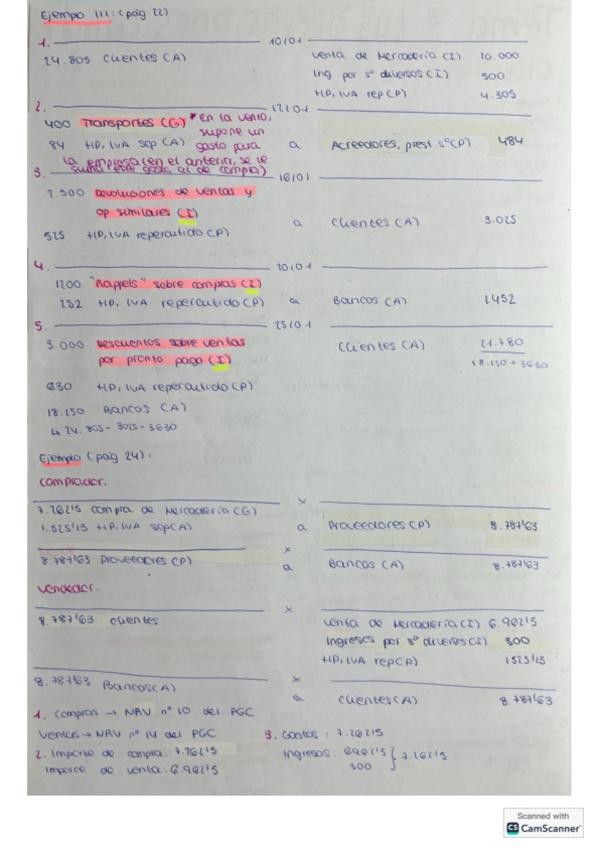 Ejemplo III: (pág 22)
1. 10/01
24.805 Clientes (A) Venta de Mercadería (I) 20.000
Ing por sº diversos (I) 500
HP, IVA rep (P) 4.305
2. 12/01
400 Transportes (G) * en la venta,
supone un
84 HP, IVA sop (A) gasto para a Acreedores, prest. sº (P) 484
la empresa (en el anterior, se le
suma este gasto al de compra)
3. 16/01
2.500 Devoluciones de ventas y
op similares (I) a Clientes (A) 3.025
525 HP, IVA repercutido (P)
4. 20/01
1200 "Rappels" sobre compras (I)
252 HP, IVA repercutido (P) a Bancos (A) 1452
5. 25/01
3.000 Descuentos sobre ventas Clientes (A) 21.780
por pronto pago (I) 18.150 + 3630
630 HP, IVA repercutido (P)
18.150 Bancos (A)
↳ 24.805 - 3025 - 3630
Ejemplo (pág 24):
Comprador.
x
7.262'5 Compra de Mercadería (G)
1.525'13 HP, IVA sop (A) a Proveedores (P) 8.787'63
x
8.787'63 Proveedores (P) a Bancos (A) 8.787'63
Vendedor.
x
8.787'63 Clientes Venta de Mercadería (I) 6.962'5
Ingresos por sº diversos (I) 300
HP, IVA rep (P) 1525'13
x
8.787'63 Bancos (A) a Clientes (A) 8.787'63
1. Compras → NRV nº 10 del PGC
Ventas → NRV nº 14 del PGC
2. Importe de compra: 7.262'5
Importe de venta: 6.962'5
3. Gastos: 7.262'5
Ingresos: 6962'5 } 7.262'5
300
Scanned with
CS CamScanner